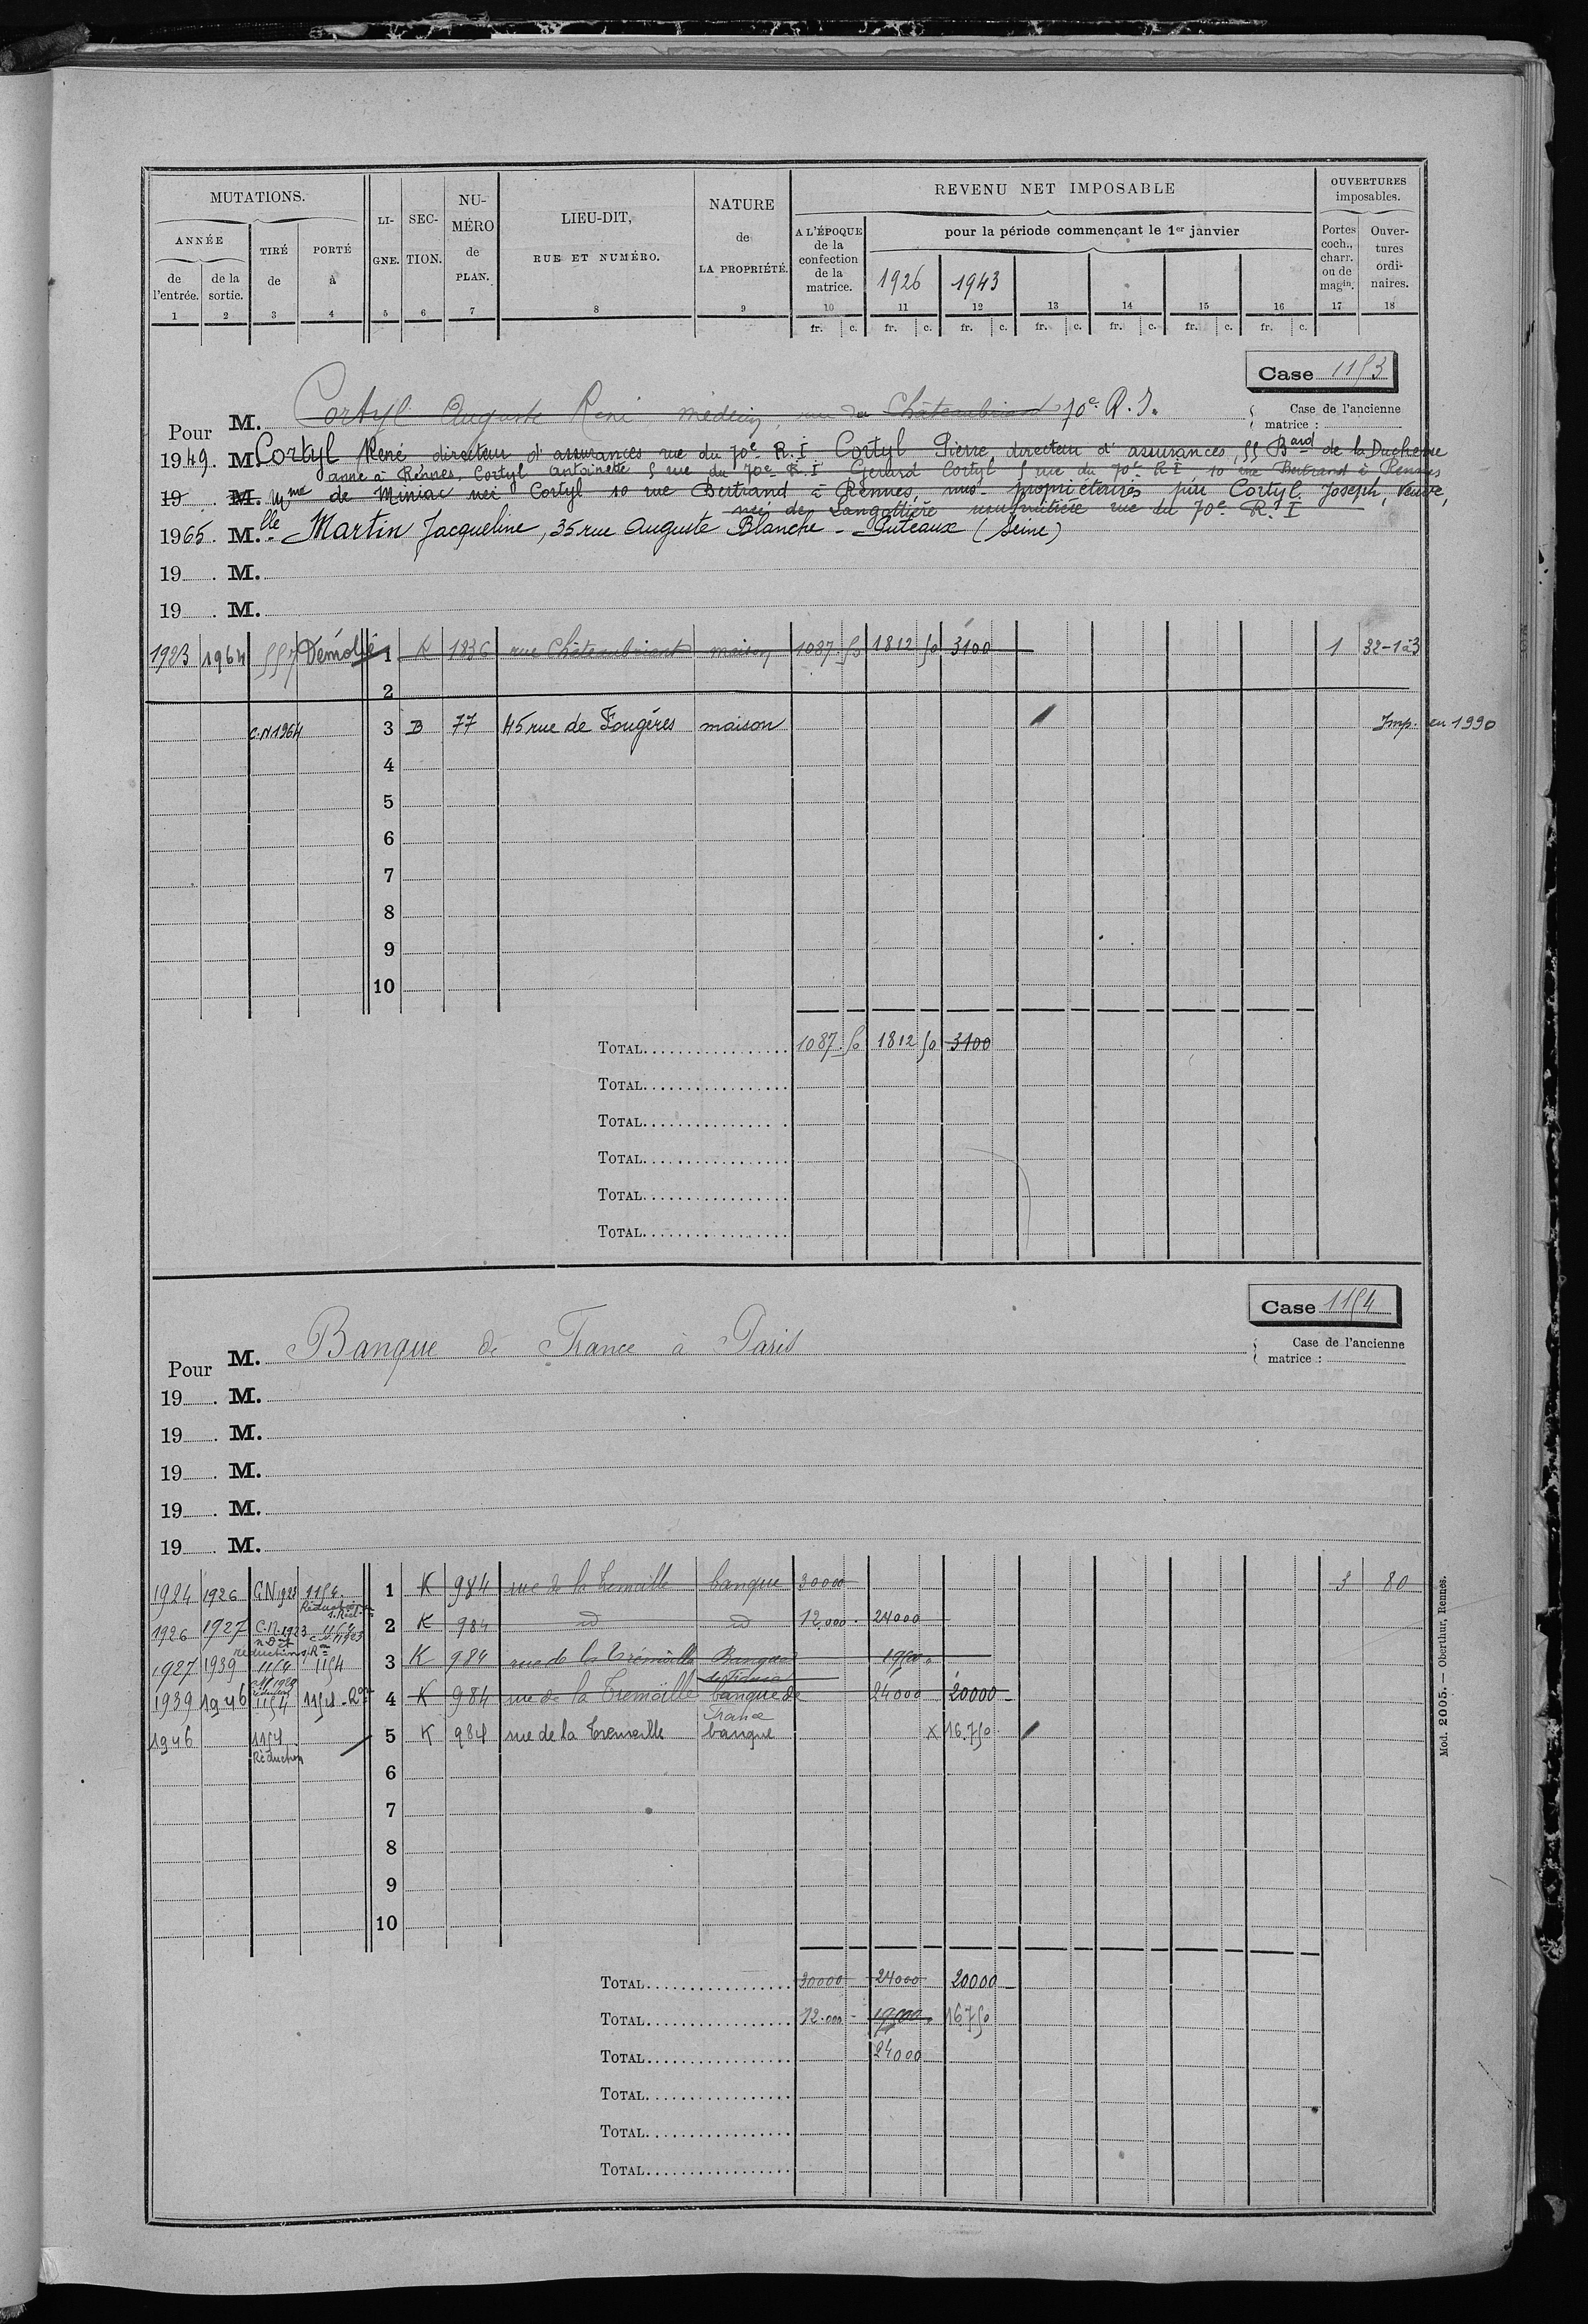 MUTATIONS.
ANNÉE
de l'entrée.
de la sortie.
TIRÉ de
PORTÉ à
LIGNE.
SECTION.
NUMÉRO de PLAN.
LIEU-DIT,
RUE ET NUMÉRO.
NATURE de LA PROPRIÉTÉ.
REVENU NET IMPOSABLE
A L'ÉPOQUE de la confection de la matrice.
pour la période commençant le 1er janvier
1926 1943
OUVERTURES imposables.
Portes coch., charr. ou de magin.
Ouvertures ordinaires.
1 2 3 4 5 6 7 8 9 10 11 12 13 14 15 16 17 18
fr. c. fr. c. fr. c. fr. c. fr. c. fr. c. fr. c.
Case 1153
Case de l'ancienne matrice :
Pour M. Cortyl Auguste René médecin, rue du Châteaubriant 70e R. I.
1949. M. Cortyl René directeur d'assurances rue du 70e R. I Cortyl Pierre, directeur d'assurances, 55 Bard de la Duchesse
anne à Rennes, Cortyl Antoinette 5 rue du 70e R. I Gérard Cortyl 5 rue du 70e R I 10 rue Bertrand à Rennes
19 M. Mme de Miniac née Cortyl 10 rue Bertrand à Rennes, nus-propriétaires par Cortyl Joseph, Veuve,
née de Langottière usufruitière rue du 70e R. I
1965. M.lle Martin Jacqueline, 35 rue Auguste Blanche - Puteaux (Seine)
19 . M.
19 . M.
1923 1964 557 Démolie 1 K 1836 rue Châteaubriant maison 1087.50 1812 50 3100 1 32-1à3
2
C.N 1964 3 B 77 45 rue de Fougères maison Imp. en 1990
4
5
6
7
8
9
10
TOTAL 1087.50 1812 50 3100
TOTAL
TOTAL
TOTAL
TOTAL
TOTAL
Case 1154
Case de l'ancienne matrice :
Pour M. Banque de France à Paris
19 . M.
19 . M.
19 . M.
19 . M.
19 . M.
1924 1926 C.N 1923 1154. 1 K 984 rue de la Tremoille banque 30000 3 80
Réduction
1926 1927 C.N. 1923 1154 2 K 984 id id 12.000. 24000
réduction
1927 1939 1154 1154 3 K 984 rue de la Trémoille Banque de France 19500.
1939 1946 1154 1154 - Ron 4 K 984 rue de la Tremoïlle banque de France 24000 20000
1946 1154. Réduction 5 K 984 rue de la Tremoille banque x 16.750
6
7
8
9
10
TOTAL 30000 24000 20000
TOTAL 12.000 - 19500. 16750
TOTAL 24000
TOTAL
TOTAL
TOTAL
Mod. 2005. — Oberthur, Rennes.